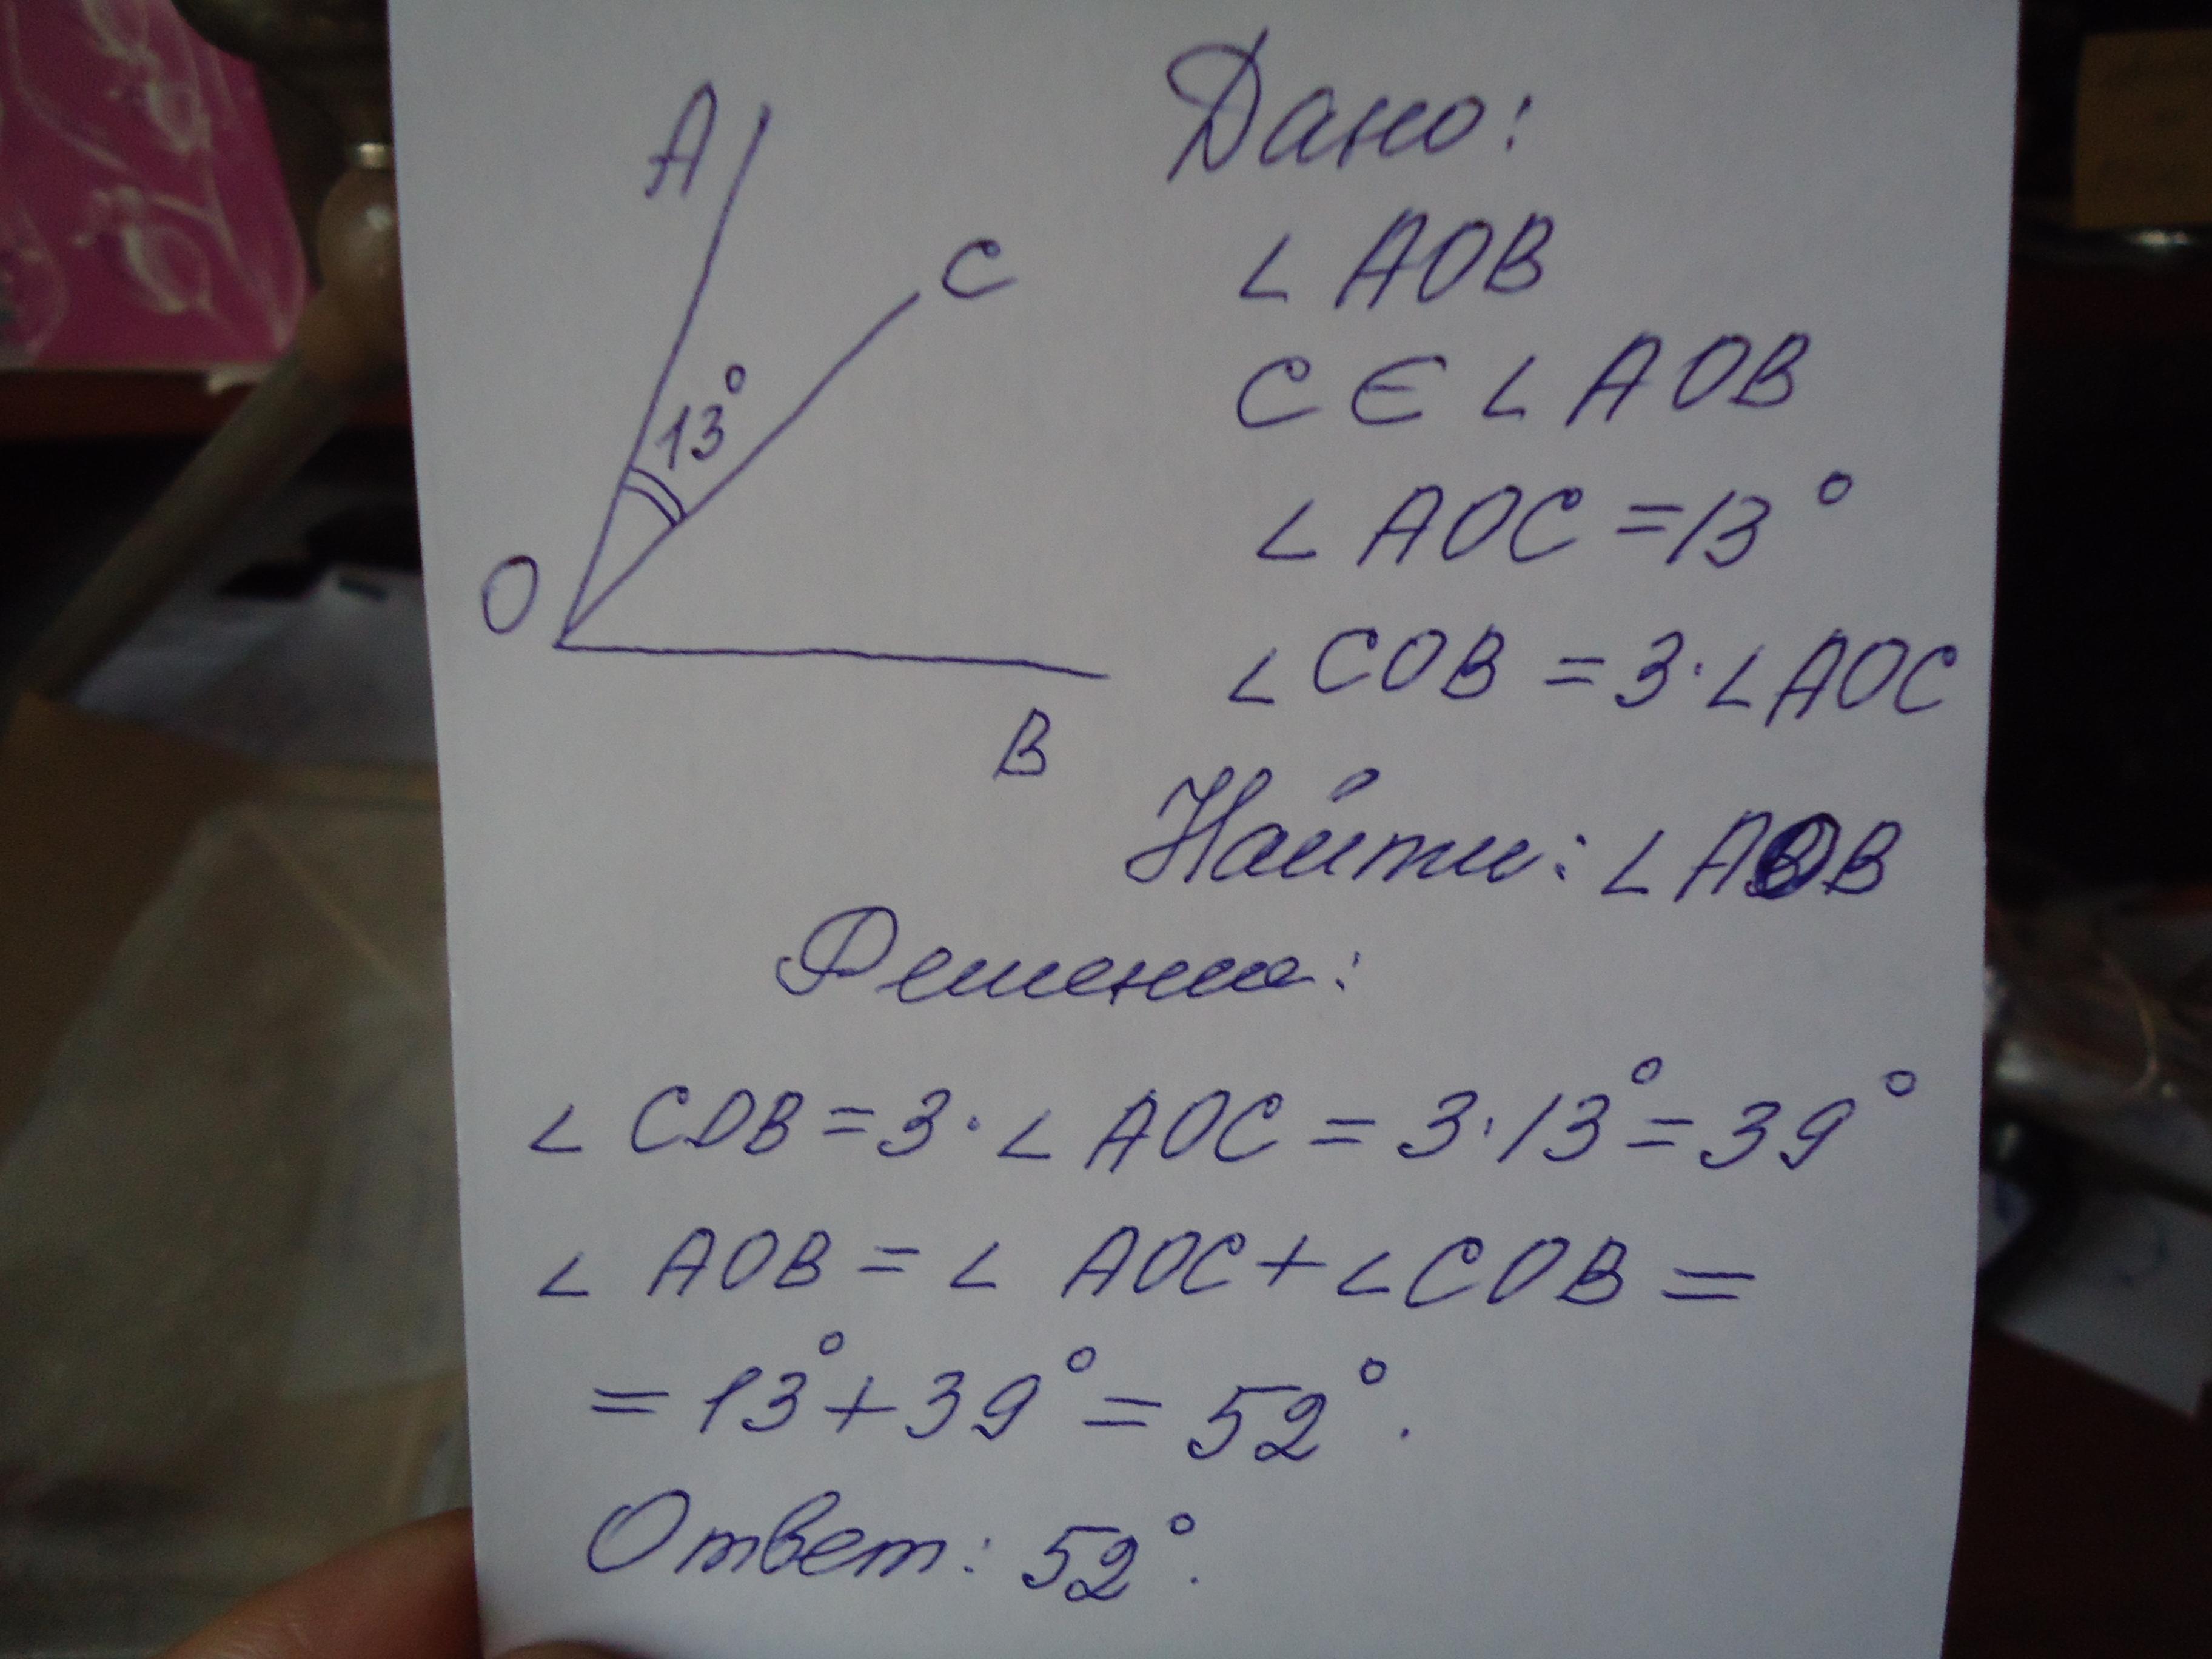 A
C
13°
O
B
Дано:
∠ AOB
C ∈ ∠ AOB
∠ AOC = 13°
∠ COB = 3·∠AOC
Найти: ∠ AOB
Решение:
∠ COB = 3·∠ AOC = 3·13° = 39°
∠ AOB = ∠ AOC + ∠COB =
= 13° + 39° = 52°.
Ответ: 52°.